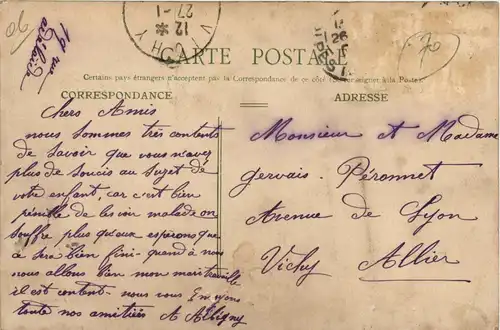 19 rue
VICHY
12 *
27 - 1
26
70
CARTE POSTALE
Certains pays étrangers n'acceptent pas la Correspondance de ce côté (Se renseigner à la Poste)
CORRESPONDANCE
ADRESSE
Chers Amis
nous sommes très contents
de savoir que vous n'avez
plus de soucis au sujet de
votre enfant, car c'est bien
pénible de les voir malade on
souffre plus qu'aux espérons que
ce sera bien fini - quand à nous
nous allons bien mon mari travaille
il est content - nous vous Envoyons
toute nos amitiées A Alligny
Monsieur et Madame
Gervais - Péronnet
Avenue de Lyon
Vichy Allier